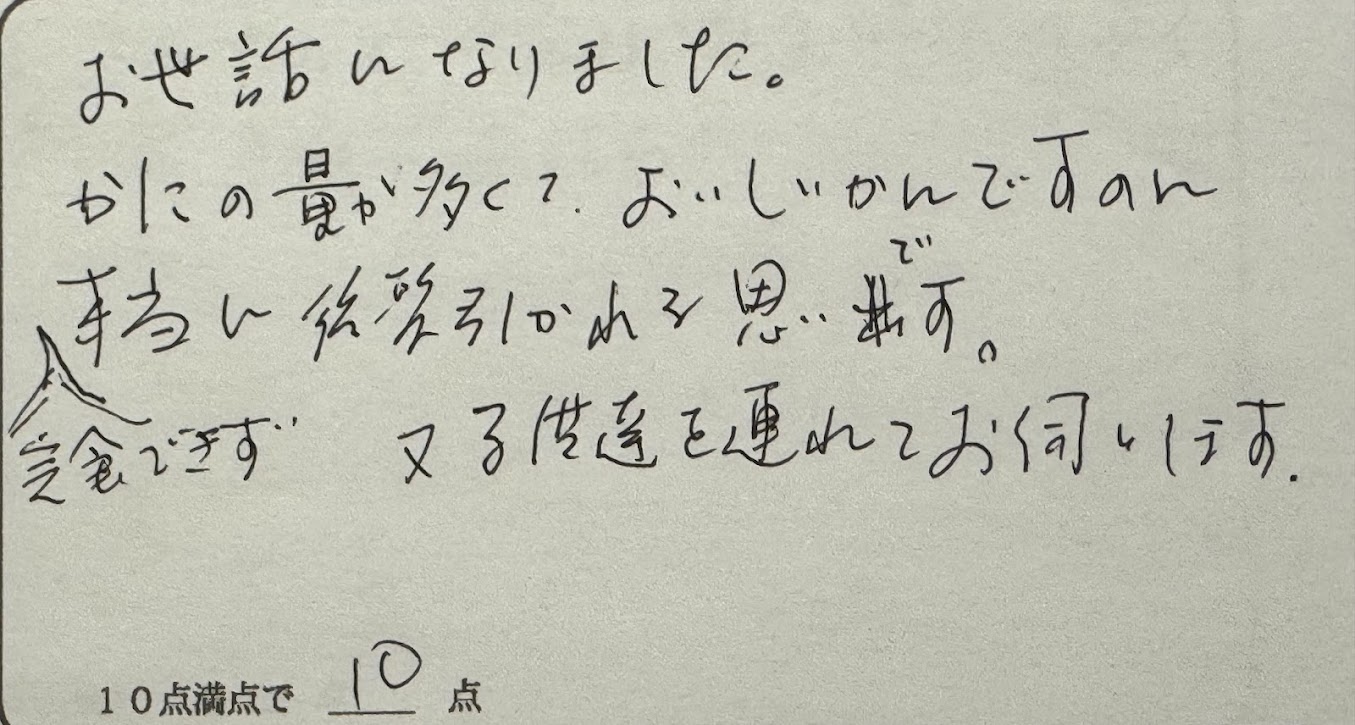 お世話になりました。
かにの量が多くて、おいしいかにですのに
完食できず
本当に後髪引かれる思いです。
又子供達を連れてお伺いします.
10点満点で 10 点